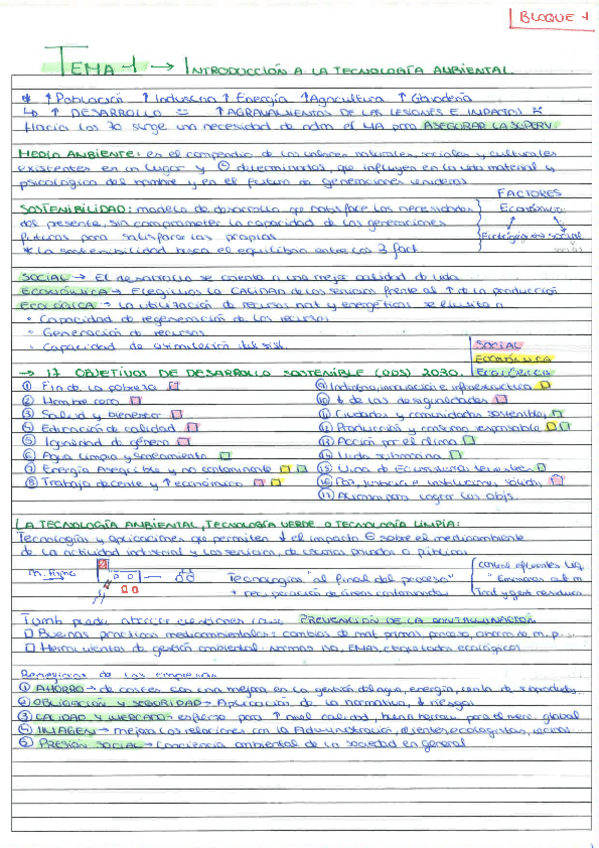 BLOQUE 1
TEMA 1 → INTRODUCCIÓN A LA TECNOLOGÍA AMBIENTAL
* ↑ Población ↑ Industria ↑ Energía ↑ Agricultura ↑ Ganadería
↳ ↑ DESARROLLO = ↑ AGRAVAMIENTOS DE LAS LESIONES E IMPACTOS *
Hacia los 70 surge una necesidad de adm el MA para ASEGURAR LA SUPERV.
MEDIO AMBIENTE: es el compendio de los valores naturales, sociales y culturales
existentes en un lugar y determinados, que influyen en la vida material y
psicológica del hombre y en el futuro de generaciones venideras.
FACTORES
SOSTENIBILIDAD: modelo de desarrollo que satisface las necesidades
Económico
del presente, sin comprometer la capacidad de las generaciones
futuras para satisfacer las propias
Ecológico ↔ social
* La sostenibilidad busca el equilibrio entre los 3 fact.
SOCIAL → El desarrollo se orienta a una mejor calidad de vida
ECONÓMICA → Elegimos la CALIDAD de los servicios frente al ↑ de la producción
ECOLÓGICA → La utilización de recursos nat y energéticos se limita a
• Capacidad de regeneración de los recursos
• Generación de recursos
• Capacidad de asimilación del sist.
SOCIAL
ECONÓMICA
ECOLÓGICA
→ 17 OBJETIVOS DE DESARROLLO SOSTENIBLE (ODS) 2030.
① Fin de la pobreza
② Hambre cero
③ Salud y bienestar
④ Educación de calidad
⑤ Igualdad de género
⑥ Agua limpia y saneamiento
⑦ Energía Asequible y no contaminante
⑧ Trabajo decente y ↑ económico
⑨ Industria, innovación e infraestructura
⑩ ↓ de las desigualdades
⑪ Ciudades y comunidades sostenibles
⑫ Producción y consumo responsable
⑬ Acción por el clima
⑭ Vida submarina
⑮ Vida de Ecosistemas terrestres
⑯ Paz, justicia e instituciones sólidas
⑰ Alianzas para lograr los objs.
LA TECNOLOGÍA AMBIENTAL, TECNOLOGÍA VERDE O TECNOLOGÍA LIMPIA:
Tecnologías y aplicaciones que permiten ↓ el impacto ⊖ sobre el medioambiente
de la actividad industrial y los servicios, de usuarios privados o públicos
Tecnologías "al final del proceso"
+ recuperación de áreas contaminadas
control efluentes líq.
" Emisiones atm
Trat y gest residuos
Tamb puede abarcar cuestiones como PREVENCIÓN DE LA CONTAMINACIÓN
□ Buenas prácticas medioambientales: cambios de mat primas, proceso, ahorro de m.p...
□ Herramientas de gestión ambiental: normas ISO, EMAS, etiquetados ecológicos
Beneficios de las empresas
① AHORRO → de costes con una mejora en la gestión del agua, energía, venta de subproductos
② OBLIGACIÓN Y SEGURIDAD → Aplicación de la normativa, ↓ riesgos
③ CALIDAD Y MERCADO: esfuerzo para ↑ nivel calidad, para el merc. global
④ IMAGEN → mejora las relaciones con la Administración, clientes, ecologistas,
⑤ PRESIÓN SOCIAL → Conciencia ambiental de la sociedad en general